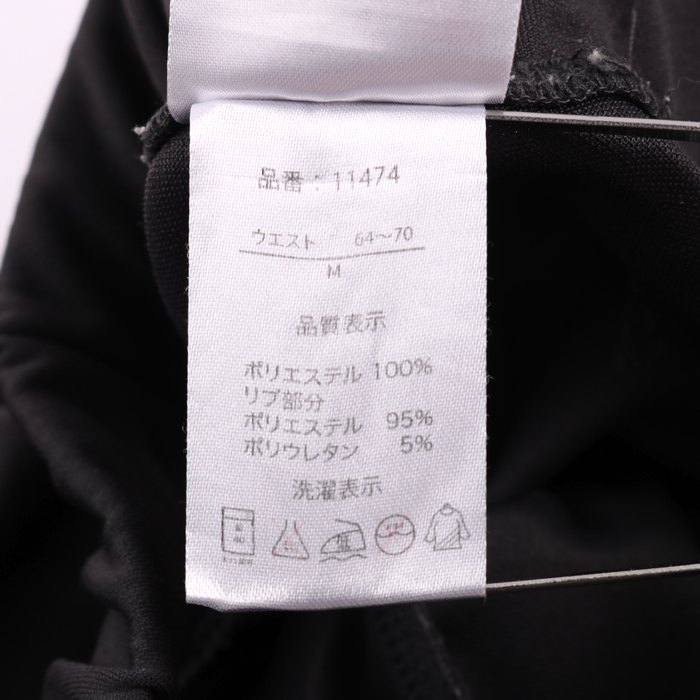 品番:11474
ウエスト 64〜70
M
品質表示
ポリエステル 100%
リブ部分
ポリエステル 95%
ポリウレタン 5%
洗濯表示
低